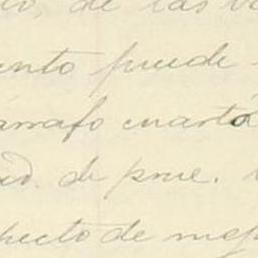 de las
ento puede
árrafo cuarto
ad. de prue.
pecto de